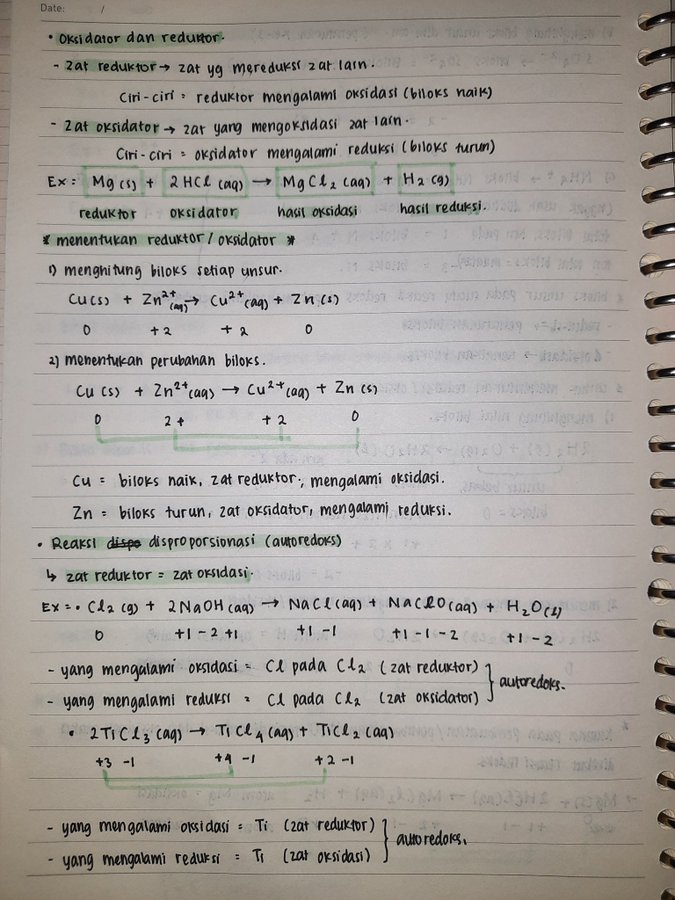 Date: /
• Oksidator dan reduktor.
- Zat reduktor → zat yg mereduksi zat lain.
Ciri-ciri = reduktor mengalami oksidasi (biloks naik)
- Zat oksidator → zat yang mengoksidasi zat lain.
Ciri-ciri = oksidator mengalami reduksi (biloks turun)
Ex = Mg (s) + 2 HCl (aq) → MgCl₂ (aq) + H₂ (g)
reduktor oksidator hasil oksidasi hasil reduksi.
* menentukan reduktor / oksidator *
1) menghitung biloks setiap unsur.
Cu (s) + Zn²⁺ (aq) → Cu²⁺ (aq) + Zn (s)
0 +2 +2 0
2) menentukan perubahan biloks.
Cu (s) + Zn²⁺ (aq) → Cu²⁺ (aq) + Zn (s)
0 2+ +2 0
Cu = biloks naik, zat reduktor, mengalami oksidasi.
Zn = biloks turun, zat oksidator, mengalami reduksi.
• Reaksi dispo disproporsionasi (autoredoks)
↳ zat reduktor = zat oksidasi.
Ex = • Cl₂ (g) + 2NaOH (aq) → NaCl (aq) + NaClO (aq) + H₂O (l)
0 +1 -2 +1 +1 -1 +1 -1 -2 +1 -2
- yang mengalami oksidasi = Cl pada Cl₂ (zat reduktor)
- yang mengalami reduksi = Cl pada Cl₂ (zat oksidator)
autoredoks.
• 2TiCl₃ (aq) → TiCl₄ (aq) + TiCl₂ (aq)
+3 -1 +4 -1 +2 -1
- yang mengalami oksidasi = Ti (zat reduktor)
- yang mengalami reduksi = Ti (zat oksidasi)
autoredoks.